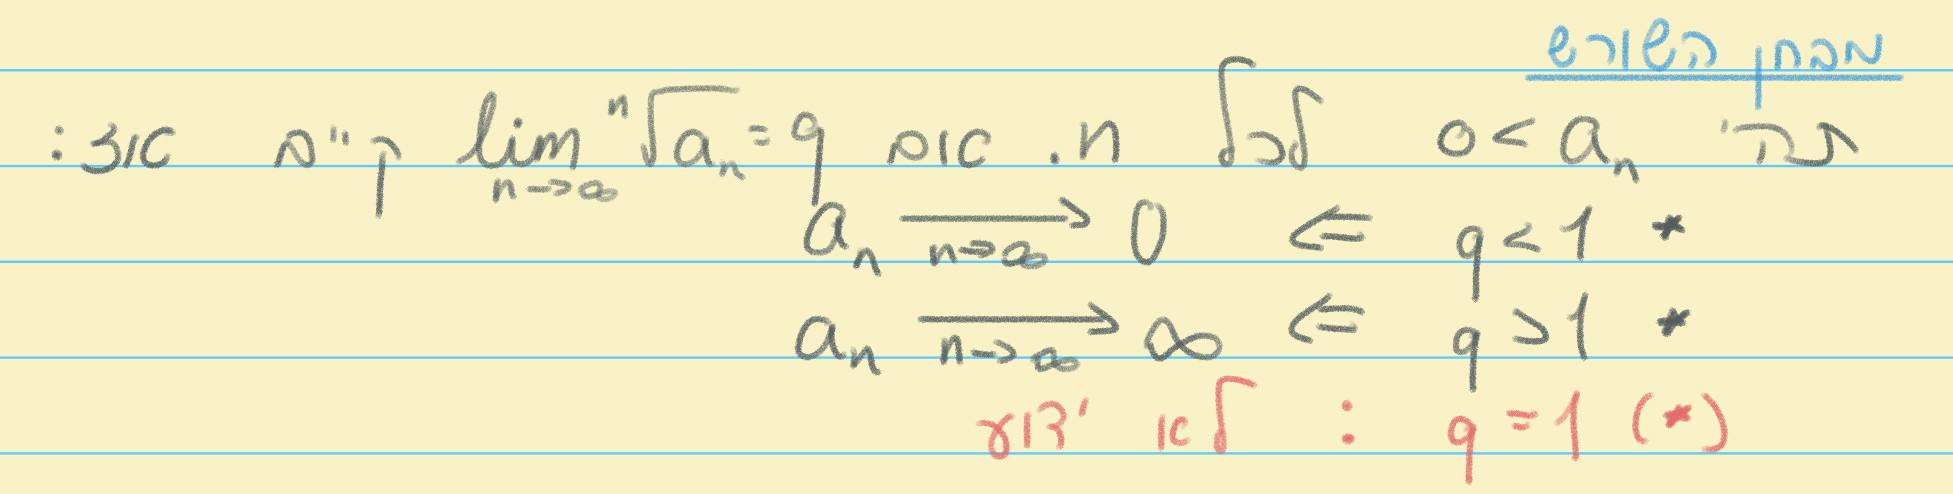 מבחן השורש
תהי 0 < aₙ לכל n. אם lim_{n→∞} ⁿ√aₙ = q קיים אז:
* q < 1 ⇐ aₙ →_{n→∞} 0
* q > 1 ⇐ aₙ →_{n→∞} ∞
(*) q = 1 : לא ידוע